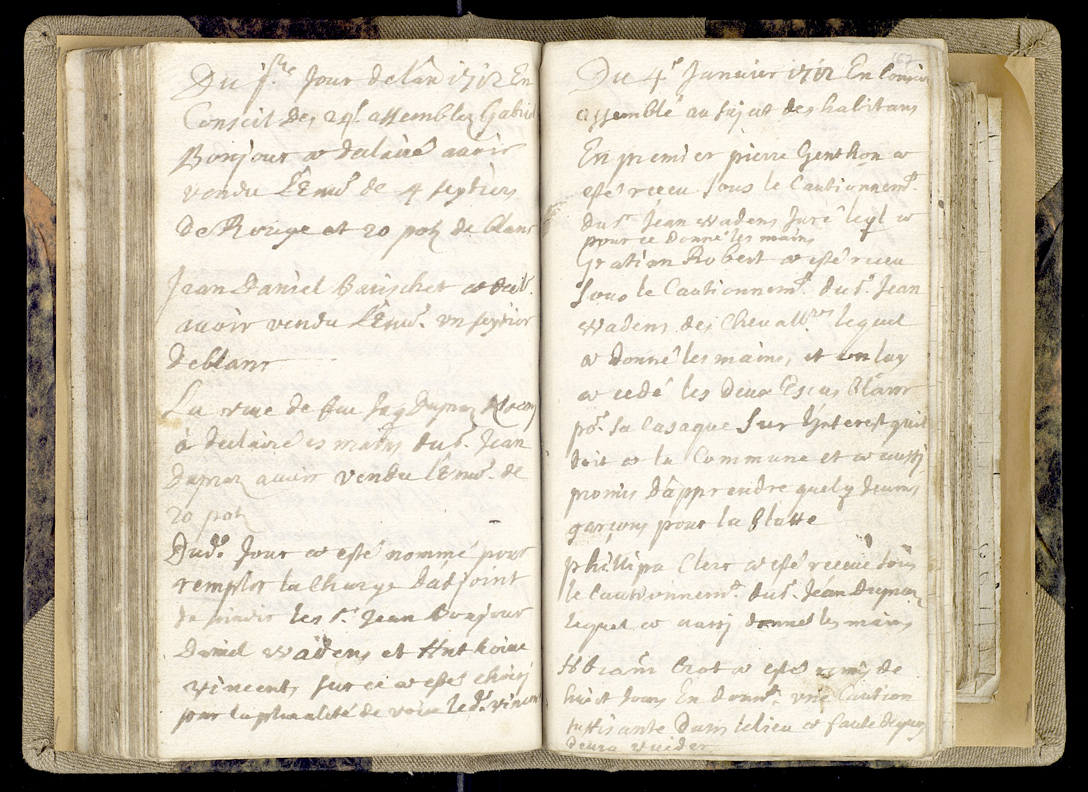 Du p.er Jour de l'an 1712 En
Conseil des 24. assemblez Gabriel
Bonjour a declairé avoir
vendu L'Emu.r de 4 septiers
de Rouge et 20 potz de blanc
Jean Daniel Barischet a decl.
avoir vendu L'Emu.r un septier
de blanc
La vve de feu Jaq Dupraz
a declairé es mains du S.r Jean
Dupraz avoir vendu l'Emu.r de
20 potz
Dud.t Jour a esté nommé pour
remplir la Charge d'adjoint
de sindic les S.r Jean Bonjour
Daniel Wadens et Anthoine
Vincent, sur ce a estes choisj
pour la pluralité de voix led.t vincent
67
Du 4.e Januier 1712 En Conseil
assemblé au sujet des habitans
En premier pierre Genthon a
esté receu sous le Cautionnem.t
du S.r Jean Wadens Juré leql a
pour ce donné les mains
Gratian Robert a esté receu
sous le Cautionnem.t du S.r Jean
Wadens des Cheuall.rs lequel
a donné les mains, et on luy
a cedé les deux Escus Blanc
po.r sa Casaque sur L'interest quil
doit a la Commune et a aussj
promis d'apprendre quelq Jeunes
garçons pour la flutte
phillipe Clerc a esté receu sous
le Cautionnem.t du S.r Jean Dupraz,
lequel a aussi donné les mains
Abram Crot a estés remis de
huict Jours En donn.t une Caution
suffisante Dans le lieu et faute dequoy
deura vuider